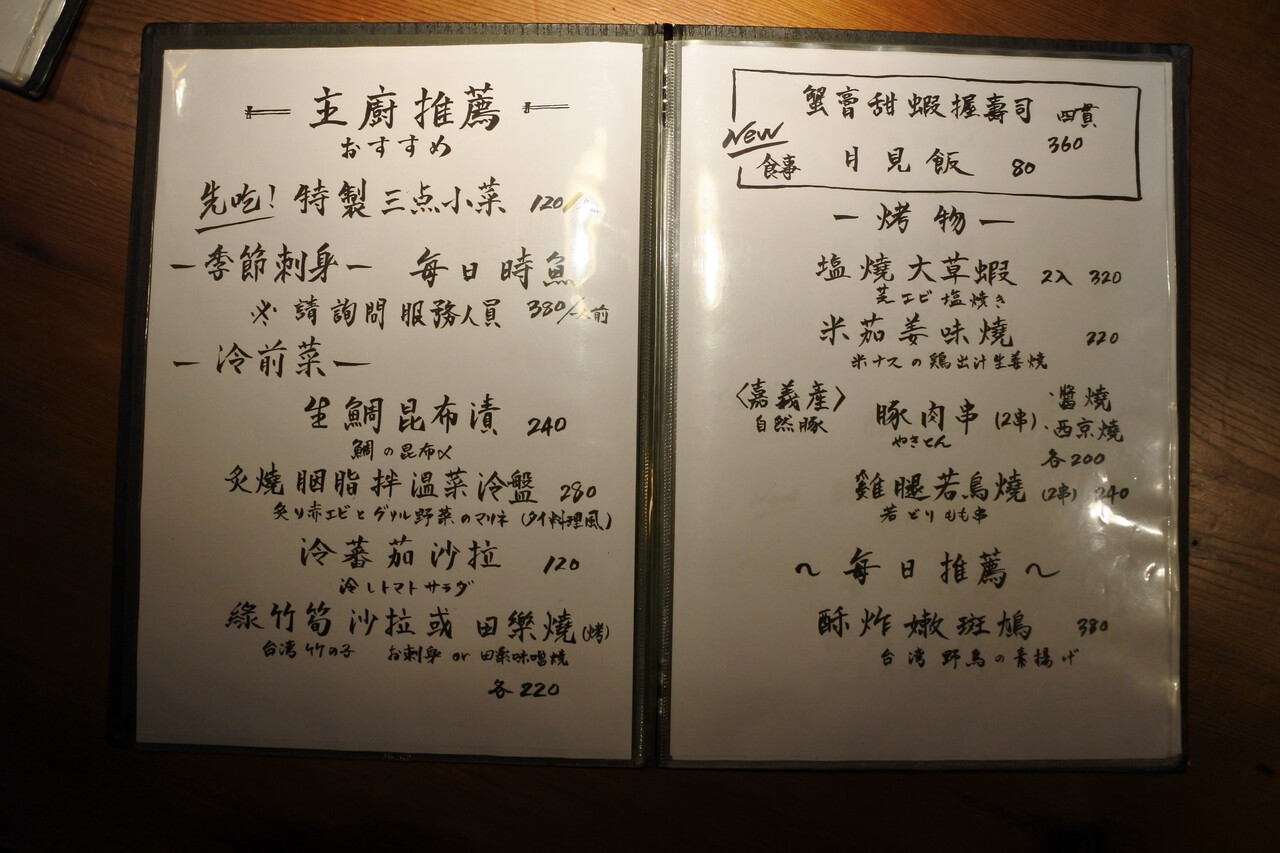 主廚推薦
おすすめ
先吃! 特製三点小菜 120/
季節刺身 每日時魚
※ 請詢問服務人員 380/人前
冷前菜
生鯛昆布漬 240
鯛の昆布〆
炙燒胭脂拌溫菜冷盤 280
炙り赤エビとグリル野菜のマリネ (タイ料理風)
冷蕃茄沙拉 120
冷しトマトサラダ
綠竹筍沙拉或田樂燒(烤)
台湾竹の子 お刺身 or 田楽味噌焼
各220
New 蟹膏甜蝦握壽司 四貫 360
食事 月見飯 80
烤物
塩燒大草蝦 2入 320
芝エビ塩焼き
米茄姜味燒 220
米ナスの鶏出汁生姜焼
〈嘉義產〉自然豚
豚肉串 (2串)
やきとん
·醬燒
·西京燒
各200
雞腿若鳥燒 (2串) 240
若どりもも串
～每日推薦～
酥炸嫩斑鳩 380
台湾野鳥の素揚げ